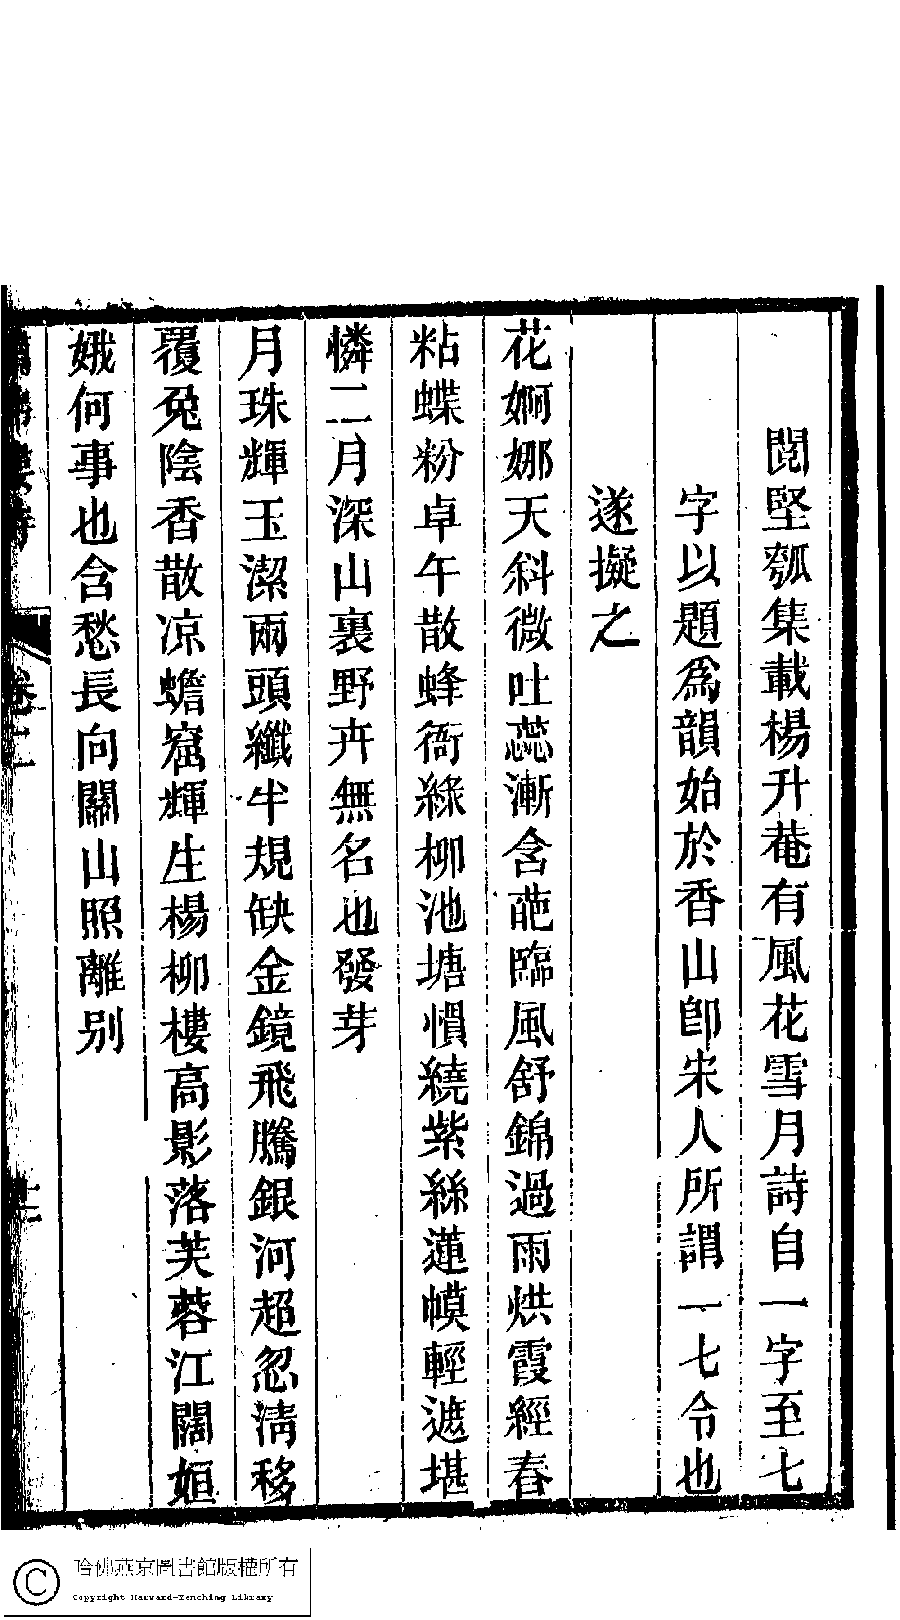 閱堅瓠集載楊升菴有風花雪月詩自一字至七
字以題爲韻始於香山卽宋人所謂一七令也
遂擬之
花婀娜天斜微吐蕊漸含葩臨風舒錦過雨烘霞經春
粘蝶粉卓午散蜂衙綠柳池塘慣繞紫絲蓮幙輕遮堪
憐二月深山裏野卉無名也發芽
月珠輝玉潔兩頭纖半規缺金鏡飛騰銀河超忽淸移
覆兔陰香散凉蟾窟輝生楊柳樓高影落芙蓉江闊姮
娥何事也含愁長向關山照離别
卷二
哈佛燕京圖書館版權所有
Copyright Harvard-Yenching Library